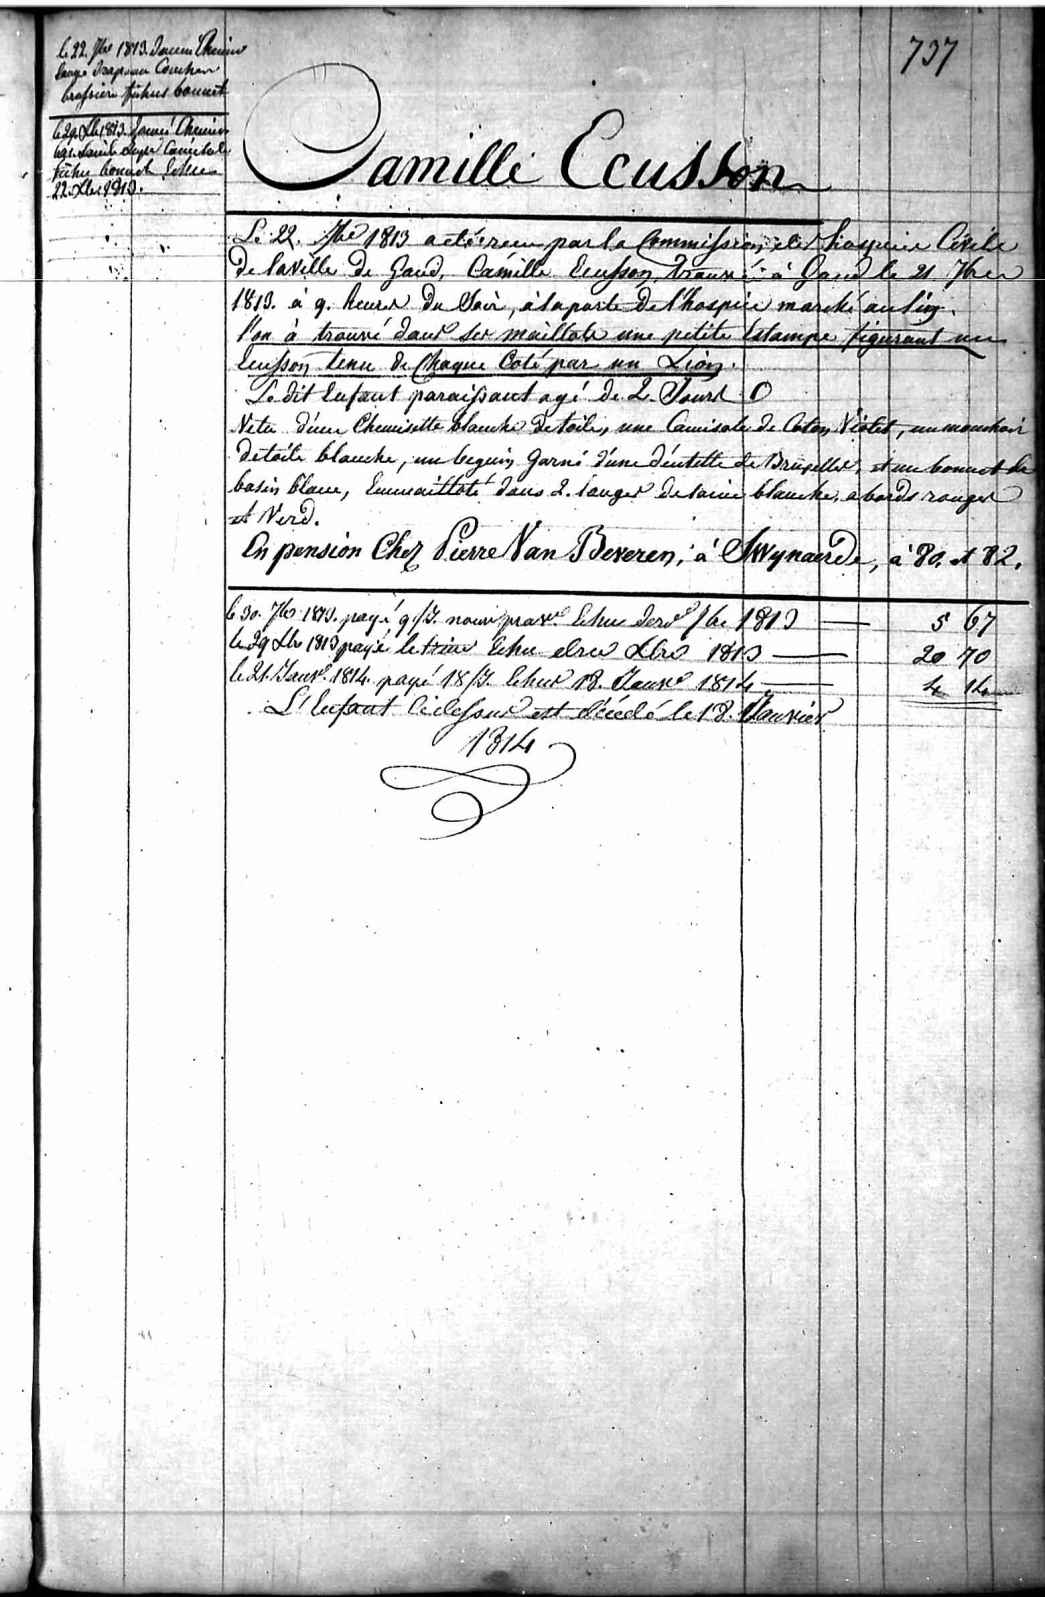 737
le 22. 7bre 1813. Donné Chemise
Lange Drapeau Couchoir
brassiere fichus bonnet
le 29. Xbre 1813. Donné Chemise
Lange Camisole
fichu bonnet Echu
22. Xbre 1813.
Camille Ecusson
Le 22. 7bre 1813 a été reçu par la Commission des hospices Civils
de la Ville de Gand, Camille Ecusson, trouvé à Gand le 21 7bre
1813. à 9. heures du Soir, à la porte de l'hospice marché au lin.
l'on à trouvé dans ses maillots une petite Estampe figurant un
Ecusson tenu de Chaque Coté par un Lion.
Le dit Enfant paraissant agé de 2 Jours
Vetu d'une Chemisette blanche de toile, une Camisole de Coton Violet, un mouchoir
de toile blanche, un beguin Garni d'une déntelle de Bruxelles, et un bonnet de
basin blanc, Emmailloté dans 2. langes de laine blanche, a bords rouges
et Verd.
En pension Chez Pierre Van Beveren, à Swynaerde, à 80. et 82.
le 30. 7bre 1813. payé 9/J. nourr. Echu 7bre 1813 — 5 67
le 29 Xbre 1813 payé le trim Echu Xbre 1813 — 20 70
le 21. Janvr. 1814. payé 18/J. Echus 18. Janvr 1814 — 4 14
L'Enfant Cidessus est décédé le 18. Janvier
1814